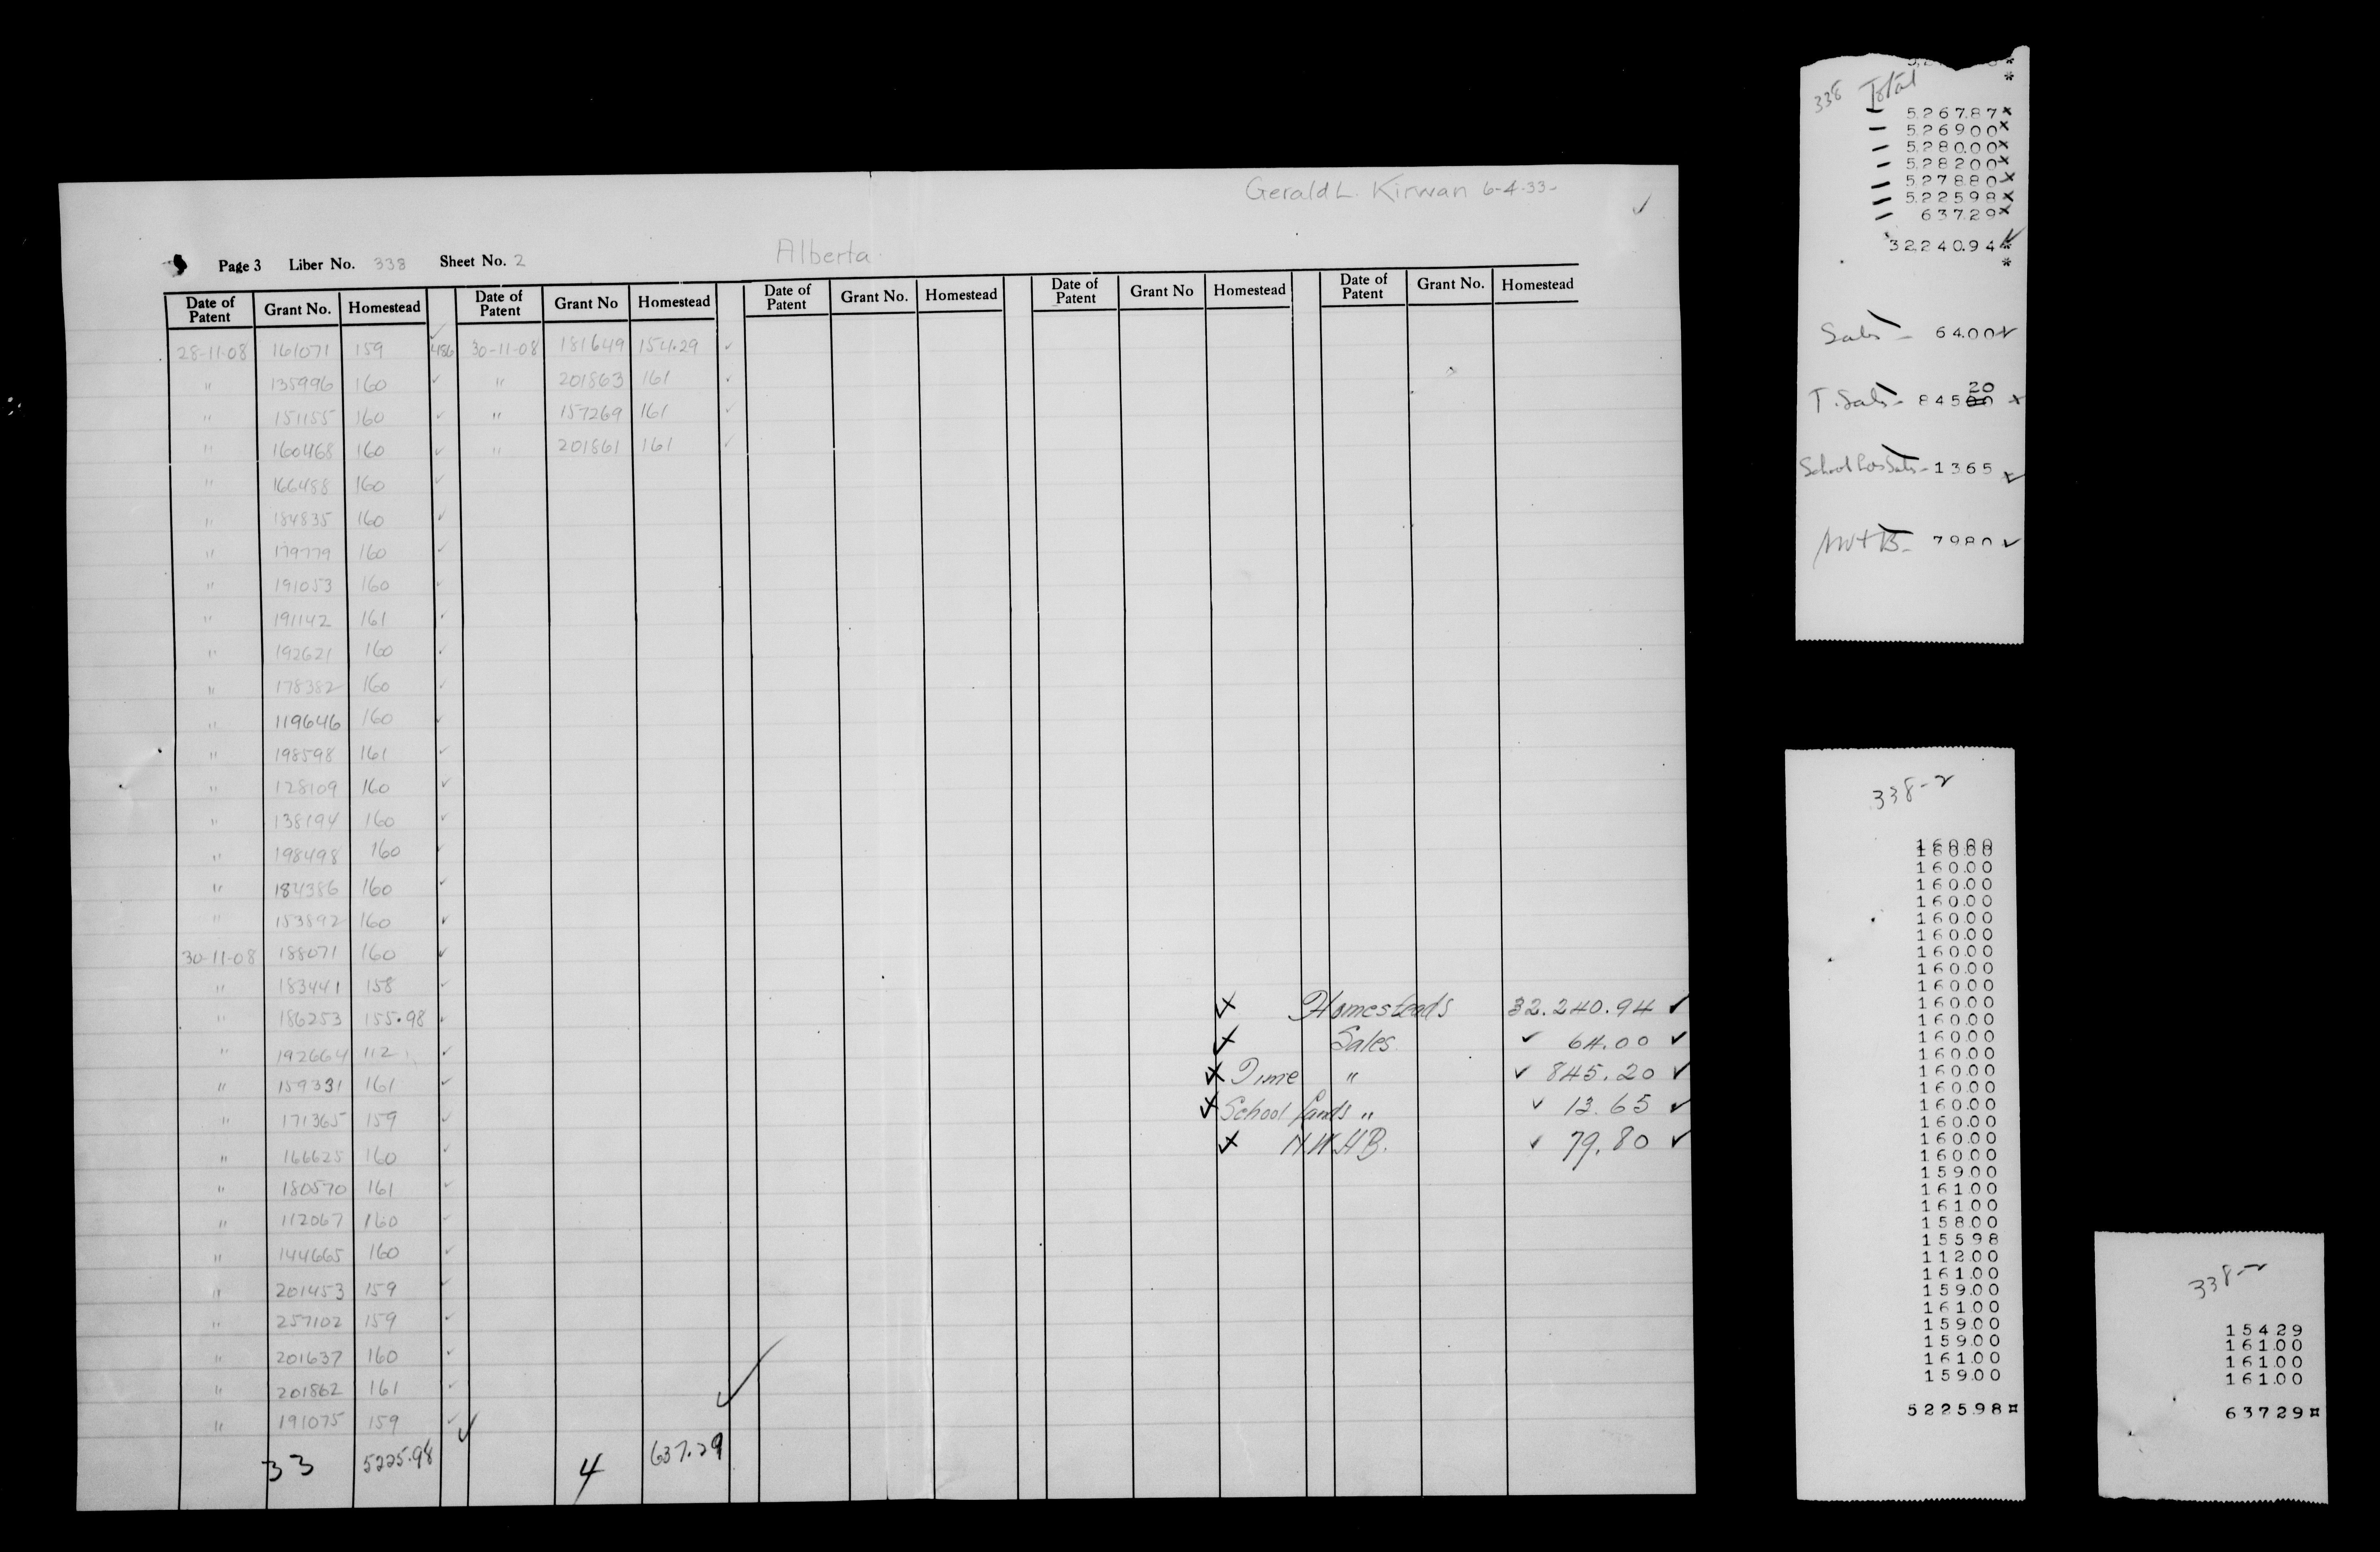 Gerald L. Kirwan 6-4-33-
Page 3 Liber No. 338 Sheet No. 2 Alberta
Date of Patent Grant No. Homestead Date of Patent Grant No Homestead Date of Patent Grant No. Homestead Date of Patent Grant No Homestead Date of Patent Grant No. Homestead
28-11-08 161071 159 486 30-11-08 181649 154.29 ✓
" 135996 160 ✓ " 201863 161 ✓
" 151155 160 ✓ " 157269 161 ✓
" 160468 160 ✓ " 201861 161 ✓
" 166488 160 ✓
" 184835 160 ✓
" 179779 160 ✓
" 191053 160 ✓
" 191142 161 ✓
" 192621 160 ✓
" 178382 160 ✓
" 119646 160 ✓
" 198598 161 ✓
" 128109 160 ✓
" 138194 160 ✓
" 198498 160 ✓
" 184386 160 ✓
" 153892 160 ✓
30-11-08 188071 160 ✓
" 183441 158 ✓
" 186253 155.98 ✓
" 192664 112 ✓
" 159331 161 ✓
" 171365 159 ✓
" 166625 160 ✓
" 180570 161 ✓
" 112067 160 ✓
" 144665 160 ✓
" 201453 159 ✓
" 257102 159 ✓
" 201637 160 ✓
" 201862 161 ✓
" 191075 159 ✓
33 5225.98 4 637.29
Homesteads 32.240.94 ✓
Sales ✓ 64.00 ✓
Time " ✓ 845.20 ✓
School Lands " ✓ 13.65 ✓
N.W.H.B. ✓ 79.80 ✓
338 Total
5,267.87
5,269.00
5,280.00
5,282.00
5,278.80
5,225.98
637.29
32,240.94
Sales - 64.00
T. Sales - 845 20
School Lds Sales - 13.65
NWHB - 79.80
338-2
160.00
160.00
160.00
160.00
160.00
160.00
160.00
160.00
160.00
160.00
160.00
160.00
160.00
160.00
160.00
160.00
160.00
160.00
160.00
160.00
159.00
161.00
161.00
158.00
155.98
112.00
161.00
159.00
161.00
159.00
159.00
161.00
159.00
5225.98
338-2
154.29
161.00
161.00
161.00
637.29